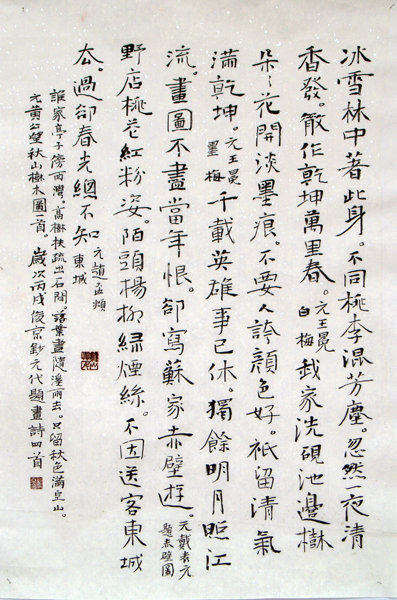 冰雪林中著此身。不同桃李混芳塵。忽然一夜清
香發。散作乾坤萬里春。元王冕白梅 我家洗硯池邊樹
朵〻花開淡墨痕。不要人誇顏色好。祇留清氣
滿乾坤。元王冕墨梅 千載英雄事已休。獨餘明月照江
流。畫圖不盡當年恨。卻寫蘇家赤壁遊。元戴表元題赤壁圖
野店桃花紅粉姿。陌頭楊柳綠煙絲。不因送客東城
去。過卻春光總不知 元趙孟頫東城
誰家亭子傍西灣。高樹扶疏出石間。落葉盡隨溪雨去。只留秋色滿空山。
元黃公望秋山樹木圖一首。歲次丙戌俊京鈔元代題畫詩四首